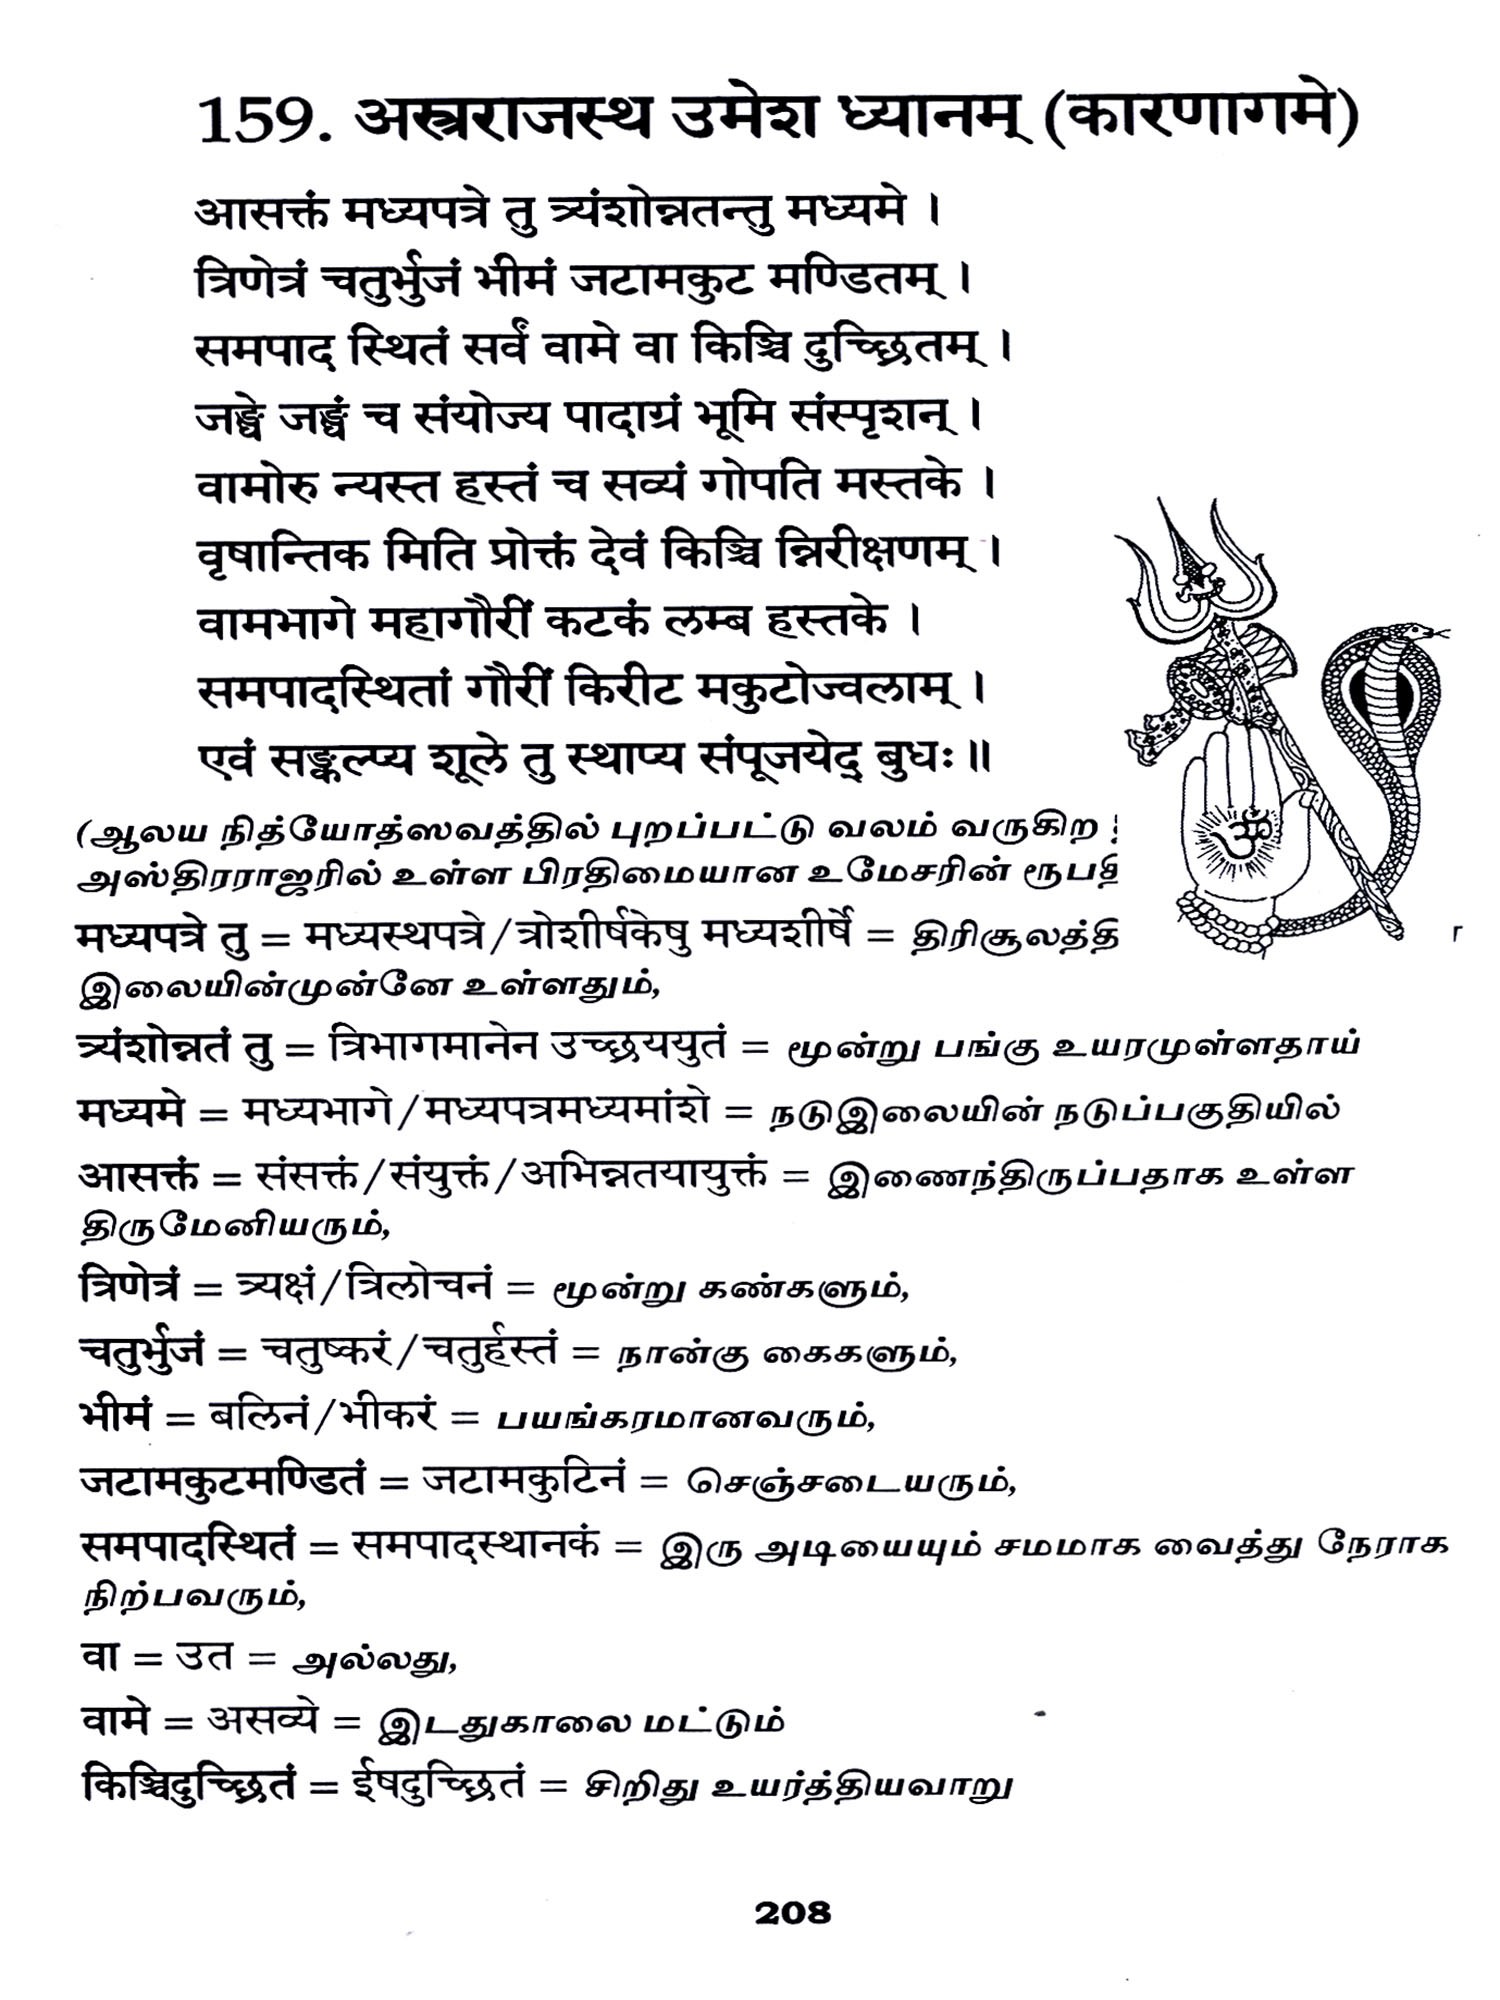 159. अस्त्रराजस्थ उमेश ध्यानम् (कारणागमे)
आसक्तं मध्यपत्रे तु त्र्यंशोन्नतन्तु मध्यमे ।
त्रिणेत्रं चतुर्भुजं भीमं जटामकुट मण्डितम् ।
समपाद स्थितं सर्वं वामे वा किञ्चि दुच्छ्रितम् ।
जङ्घे जङ्घं च संयोज्य पादाग्रं भूमि संस्पृशन् ।
वामोरु न्यस्त हस्तं च सव्यं गोपति मस्तके ।
वृषान्तिक मिति प्रोक्तं देवं किञ्चि न्निरीक्षणम् ।
वामभागे महागौरीं कटकं लम्ब हस्तके ।
समपादस्थितां गौरीं किरीट मकुटोज्वलाम् ।
एवं सङ्कल्प्य शूले तु स्थाप्य संपूजयेद् बुधः ॥
(ஆலய நித்யோத்ஸவத்தில் புறப்பட்டு வலம் வருகிற
அஸ்திரராஜரில் உள்ள பிரதிமையான உமேசரின்
मध्यपत्रे तु = मध्यस्थपत्रे/त्रोशीर्षकेषु मध्यशीर्षे = திரிசூலத்தி
இலையின்முன்னே உள்ளதும்,
त्र्यंशोन्नतं तु = त्रिभागमानेन उच्छ्रययुतं = மூன்று பங்கு உயரமுள்ளதாய்
मध्यमे = मध्यभागे/मध्यपत्रमध्यमांशे = நடுஇலையின் நடுப்பகுதியில்
आसक्तं = संसक्तं/संयुक्तं/अभिन्नतयायुक्तं = இணைந்திருப்பதாக உள்ள
திருமேனியரும்,
त्रिणेत्रं = त्र्यक्षं/त्रिलोचनं = மூன்று கண்களும்,
चतुर्भुजं = चतुष्करं/चतुर्हस्तं = நான்கு கைகளும்,
भीमं = बलिनं/भीकरं = பயங்கரமானவரும்,
जटामकुटमण्डितं = जटामकुटिनं = செஞ்சடையரும்,
समपादस्थितं = समपादस्थानकं = இரு அடியையும் சமமாக வைத்து நேராக
நிற்பவரும்,
वा = उत = அல்லது,
वामे = असव्ये = இடதுகாலை மட்டும்
किञ्चिदुच्छ्रितं = ईषदुच्छ्रितं = சிறிது உயர்த்தியவாறு
ॐ
208